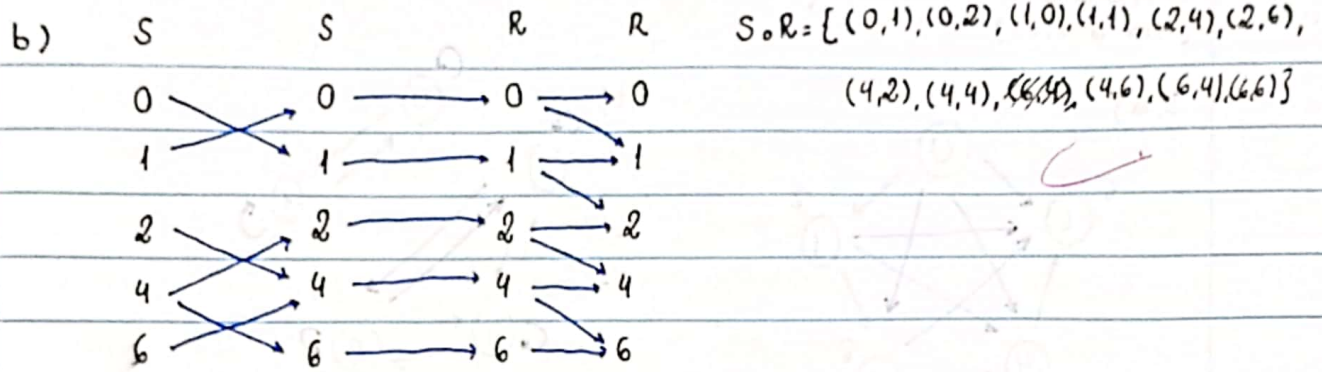 b) S S R R S∘R = {(0,1), (0,2), (1,0), (1,1), (2,4), (2,6),
0 0 0 0 (4,2), (4,4), (4,6), (6,4), (6,6)}
1 1 1 1
2 2 2 2
4 4 4 4
6 6 6 6